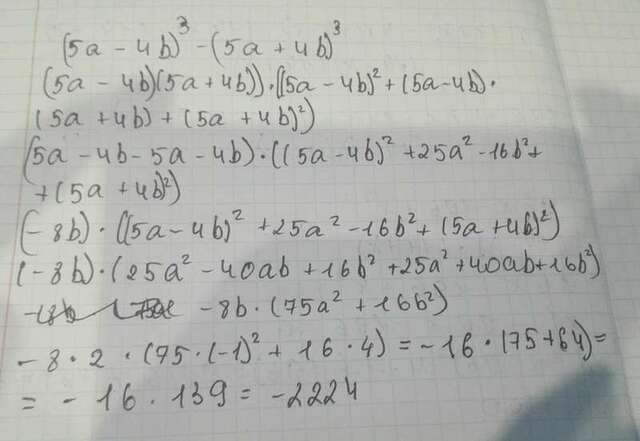 (5a - 4b)³ - (5a + 4b)³
(5a - 4b)(5a + 4b))·((5a - 4b)² + (5a - 4b)·
(5a + 4b) + (5a + 4b)²)
(5a - 4b - 5a - 4b)·((5a - 4b)² + 25a² - 16b² +
+ (5a + 4b)²)
(-8b)·((5a - 4b)² + 25a² - 16b² + (5a + 4b)²)
(-8b)·(25a² - 40ab + 16b² + 25a² + 40ab + 16b²)
-8b·(75a² + 16b²)
-8·2·(75·(-1)² + 16·4) = -16·(75+64) =
= -16·139 = -2224